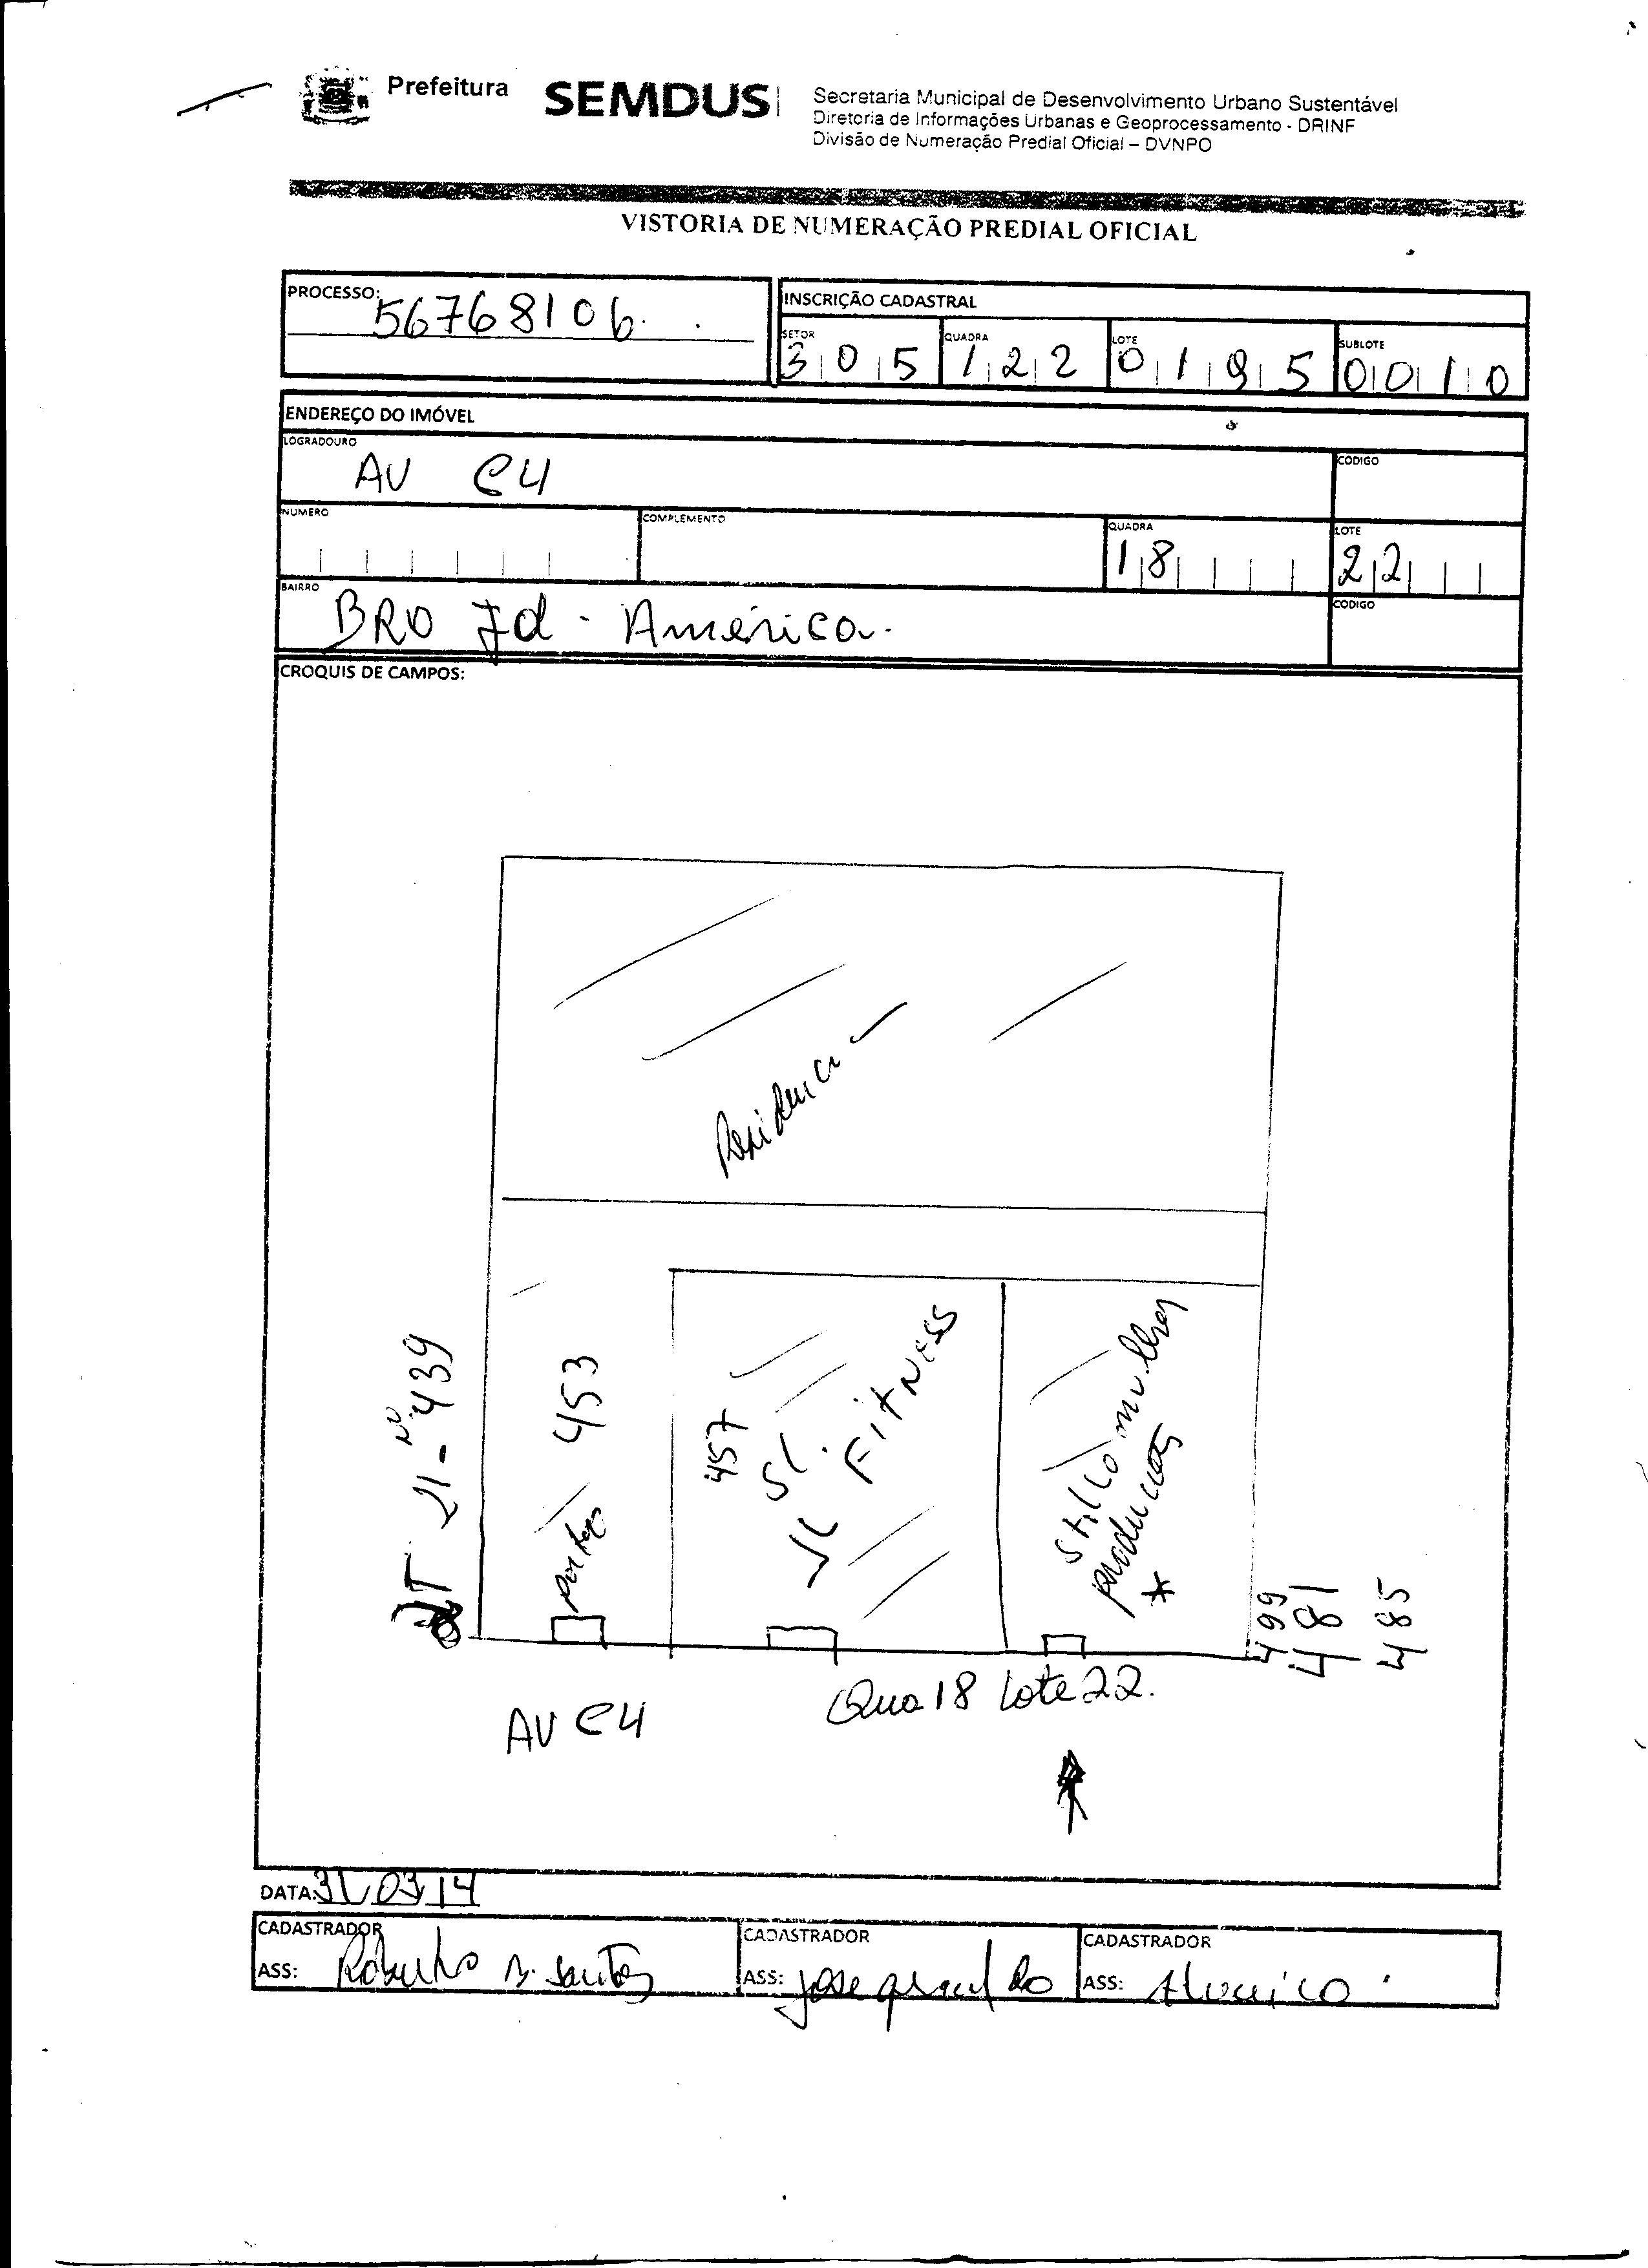 Prefeitura
SEMDUS
Secretaria Municipal de Desenvolvimento Urbano Sustentável
Diretoria de Informações Urbanas e Geoprocessamento - DRINF
Divisão de Numeração Predial Oficial – DVNPO
VISTORIA DE NUMERAÇÃO PREDIAL OFICIAL
PROCESSO: 56768106
INSCRIÇÃO CADASTRAL
SETOR QUADRA LOTE SUBLOTE
305 122 0195 0010
ENDEREÇO DO IMÓVEL
LOGRADOURO CODIGO
AV C4
NUMERO COMPLEMENTO QUADRA LOTE
18 22
BAIRRO CODIGO
BRO Jd - América
CROQUIS DE CAMPOS:
Residencia
LT 21 - Nº 439
453
457
SL.
JL FitNESS
Stillo mulher
producões
*
499
481
485
Qua 18 Lote 22.
AV C4
DATA: 31/03/14
CADASTRADOR CADASTRADOR CADASTRADOR
ASS: Roberto Santos ASS: Jose geraldo ASS: